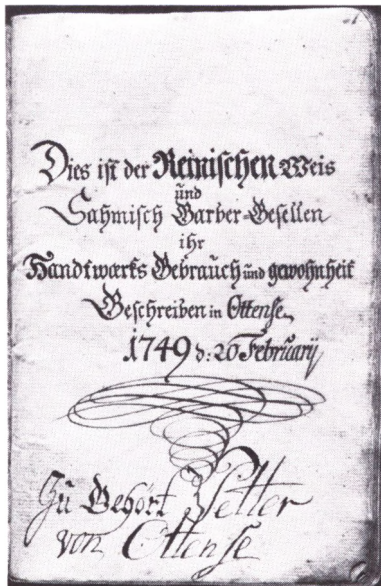 Dies ist der Reinischen Weis
und
Sahmisch Garber-Gesellen
ihr
Handtwærks Gebrauch und gewohnheit
Beschreiben in Ottense
1749 d: 26 February
Zu Gehört Petter
von Ottense